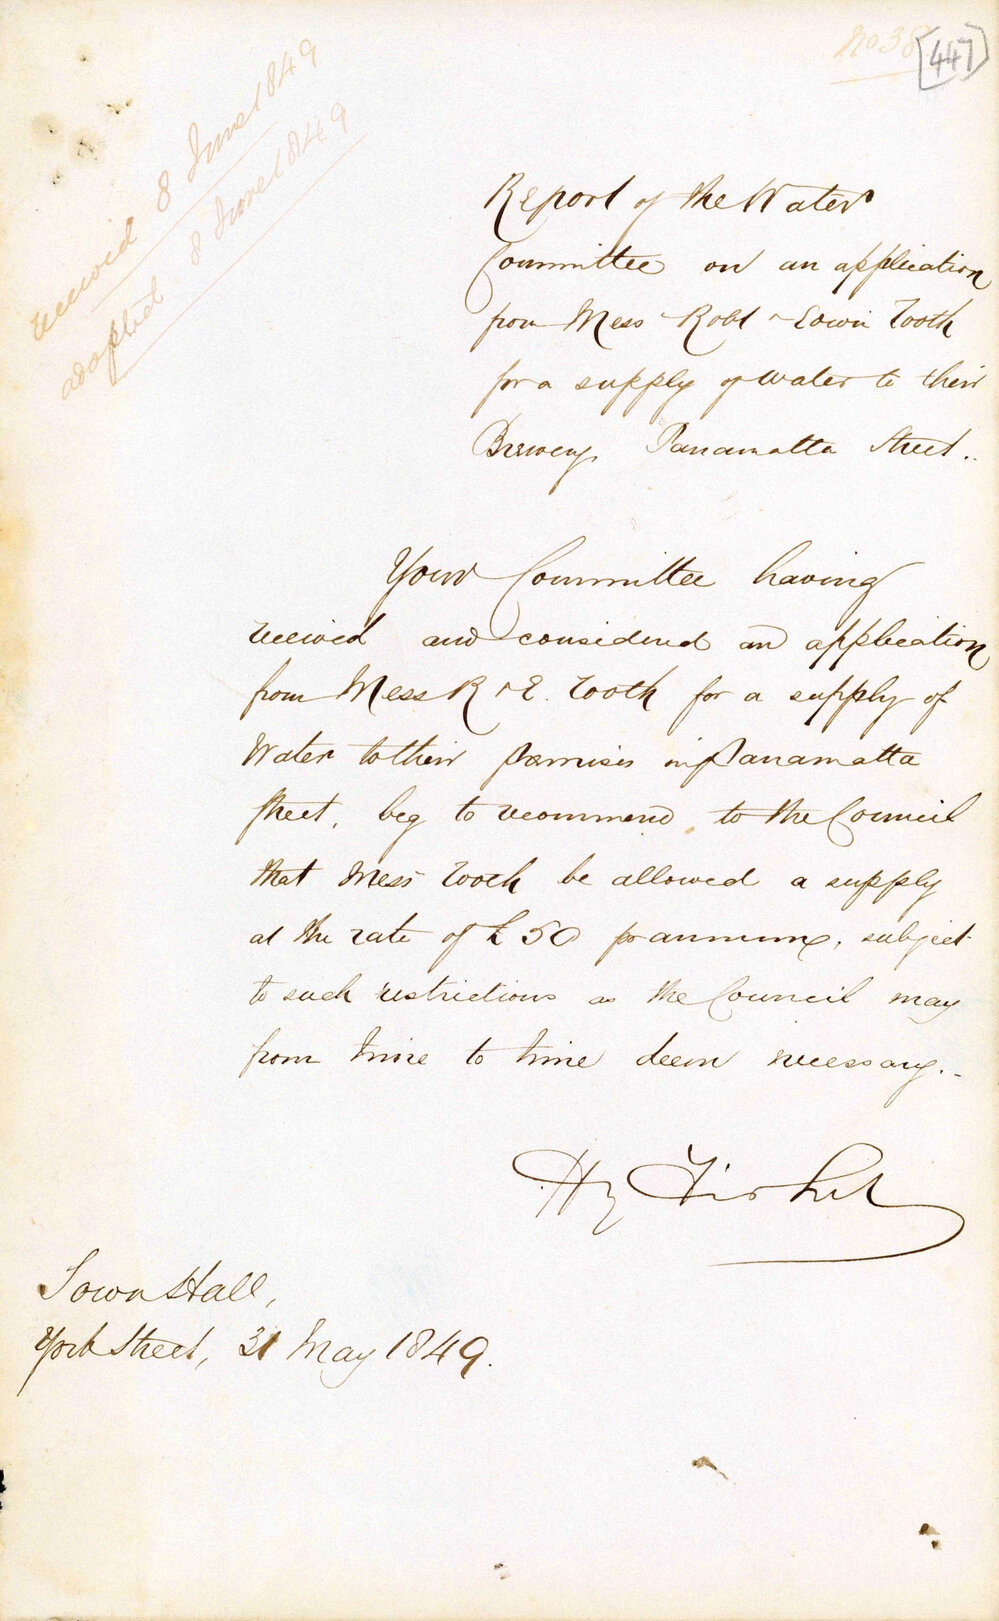 No 38
[447]
Received 8 June 1849
adopted 8 June 1849
Report of the Water
Committee on an application
from Mess Robt & Edwin Tooth
for a supply of water to their
Brewery Parramatta Street.
Your Committee having
received and considered an application
from Mess R & E. Tooth for a supply of
Water to their premises in Parramatta
street, beg to recommend to the Council
that Mess Tooth be allowed a supply
at the rate of £50 pr annum, subject
to such restrictions as the Council may
from time to time deem necessary.
Hy
Town Hall,
York Street, 31 May 1849.